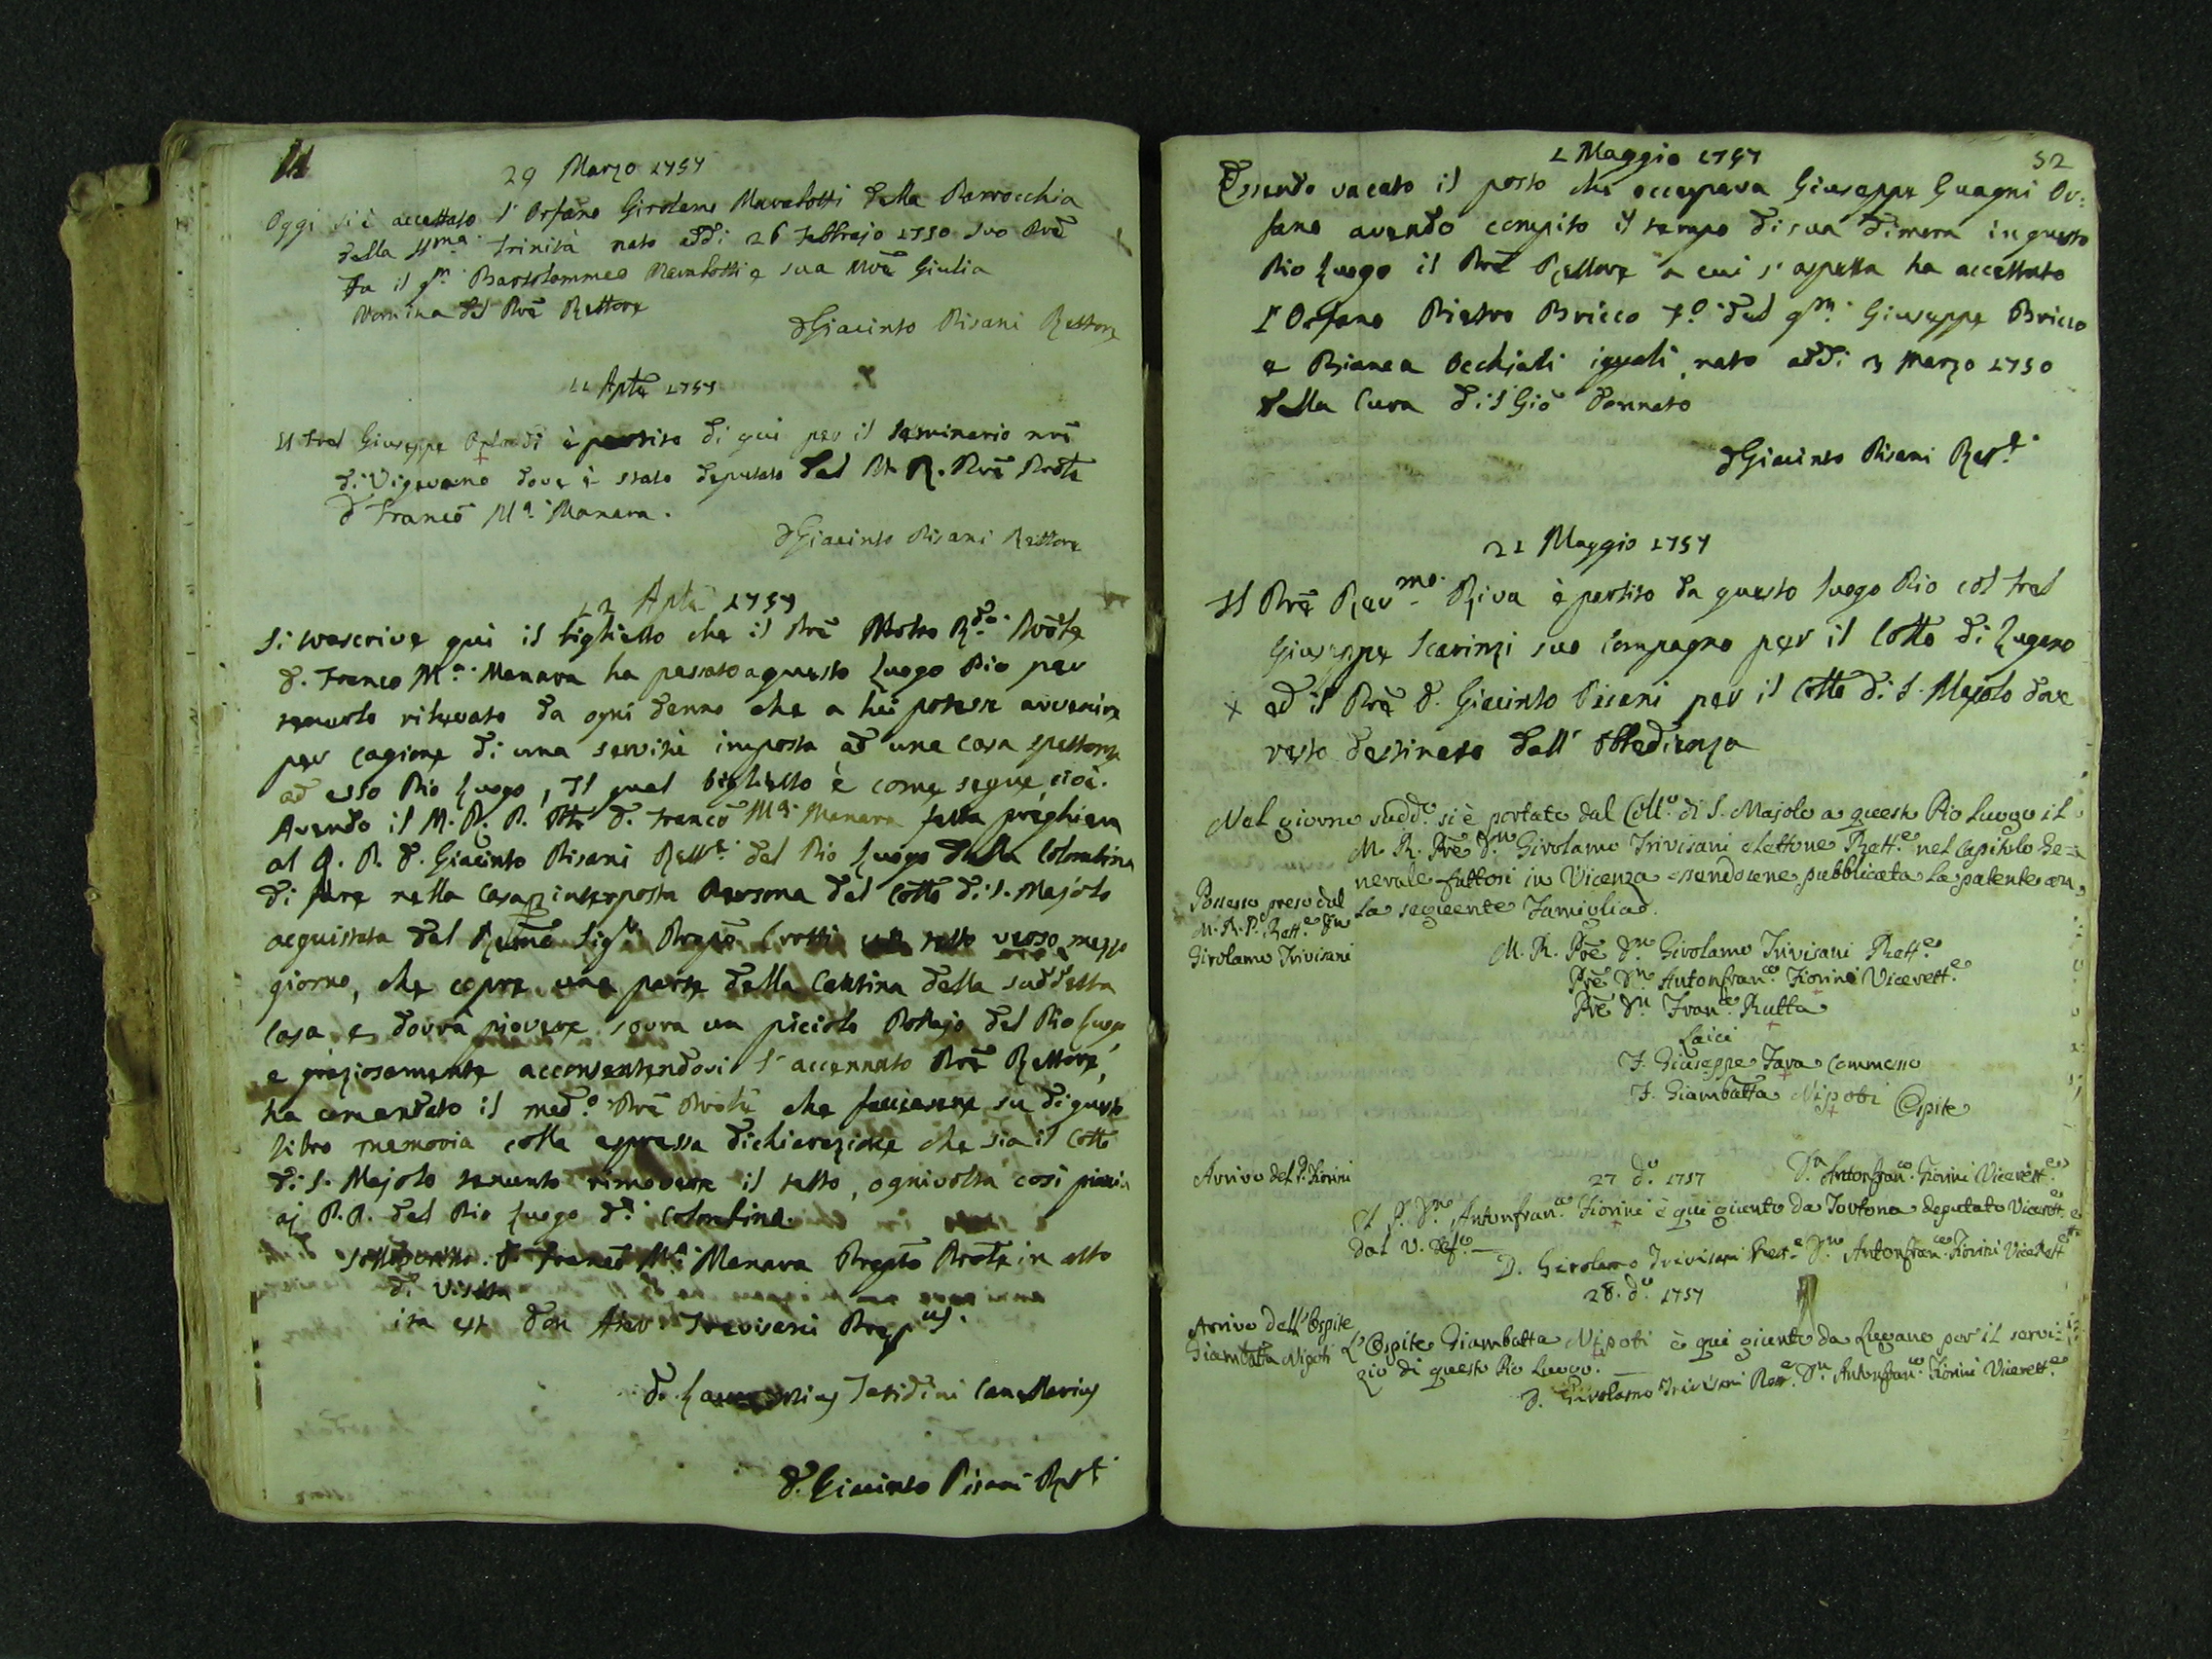 29 Marzo 1757
Oggi si è accettato l'Orfano Girolamo della Parrocchia
della SSma. Trinità nato addi 26 Febbrajo 1750 suo Prē
fu il qm. Bartolommeo e sua Mrē Giulia
Nomina del Prē Rettore
D Giacinto Pisani Rettore
11 Aple 1757
Il Frel Giuseppe è partito di qui per il Seminario nrō
di Vigevano dove è stato deputato dal M. R. Prē Prōle
D Francō Ma. Manara.
D Giacinto Pisani Rettore
12 Aple 1757
Si trascrive qui il biglietto che il Prē Molto Rdo. Prōle
D. Franco Ma. Manara ha passato a questo Luogo Pio per
tenerlo rilevato da ogni danno che a lui potesse avvenire
per cagione di una servitù imposta ad una casa spettante
ad esso Pio Luogo, Il qual biglietto è come segue, cioè.
Avendo il M. R. P. Ple D. Francō Ma. Manara fatta preghiera
al M. R. D. Giacinto Pisani Rette. del Pio Luogo della Colombina
di fare nella Casa p interposta Persona del Collo di S. Majolo
acquistata dal Sigr. Crotti un tetto verso mezzo
giorno, che copre una parte della Cantina della suddetta
Casa e dovrà piovere sovra un picciolo del Pio Luogo,
e graziosamente acconsentendovi l'accennato Prē Rettore,
ha comandato il medo. Prē Prōle che facciasene su di questo
libro memoria colla espressa dichiarazione che sia il Collo
di S. Majolo tenuto rimovere il tetto, ognivolta così piaccia
aj P.P. del Pio Luogo di Colombina
Sottoscritto. D Francō Ma. Manara Prepto Prōle in atto
di Visita
ita est Don Trevisani Prepus.
D. Cancellarius
D. Giacinto Pisani Rett
52
1 Maggio 1757
Essendo vacato il posto che occupava Giuseppe Guagni Or:
fano avendo compito il tempo di sua dimora in questo
Pio Luogo il Prē Rettore a cui s'aspetta ha accettato
l'Orfano Pietro Bricco fo. del qm. Giuseppe Bricco
e Bianca Occhiali jugali, nato addi 3 Marzo 1750
della Cura di S Giō Donnato
D Giacinto Pisani Rett.
21 Maggio 1757
Il Prē Revmo. Riva è partito da questo Luogo Pio col Frel
Giuseppe Scarinzi suo Compagno per il Collo di Lugano
x ed il Prē D. Giacinto Pisani per il Collo di S. Majolo dove
resta destinato dall' Obbedienza
Nel giorno suddo. si è portato dal Collo. di S. Majolo a questo Pio Luogo il
M. R. Prē Dn. Girolamo Trivisani elettone Rette. nel Capitolo Ge=
nerale fattosi in Vicenza essendosene pubblicata la patente con
la seguente Famigliad.
Possesso preso dal
M. R. P. Rette. Dn
Girolamo Trivisani
M. R. Prē Dn. Girolamo Trivisani Rette.
Prē Dn. Antonfranco. Fiorini Vicerette.
Prē Dn. Franco. Rutta
Laici
F. Giuseppe Fava Commesso
F. Giambatta Nipoti Ospite
Arrivo del P. Fiorini
27 do. 1757
Dn. Antonfranco. Fiorini Vicerette.
Il P. Dn. Antonfranco. Fiorini è qui giunto da Tortona deputato Vicerette.
dal V. Defo.
D. Girolamo Trivisani Rette. Dn. Antonfranco. Fiorini ViceRette.
28. do. 1757
Arrivo dell'Ospite
Giambatta Nipoti
L'Ospite Giambatta Nipoti è qui giunto da Lugano per il servi:
zio di questo Pio Luogo.
D. Girolamo Trivisani Rette. Dn. Antonfranco. Fiorini Vicerette.